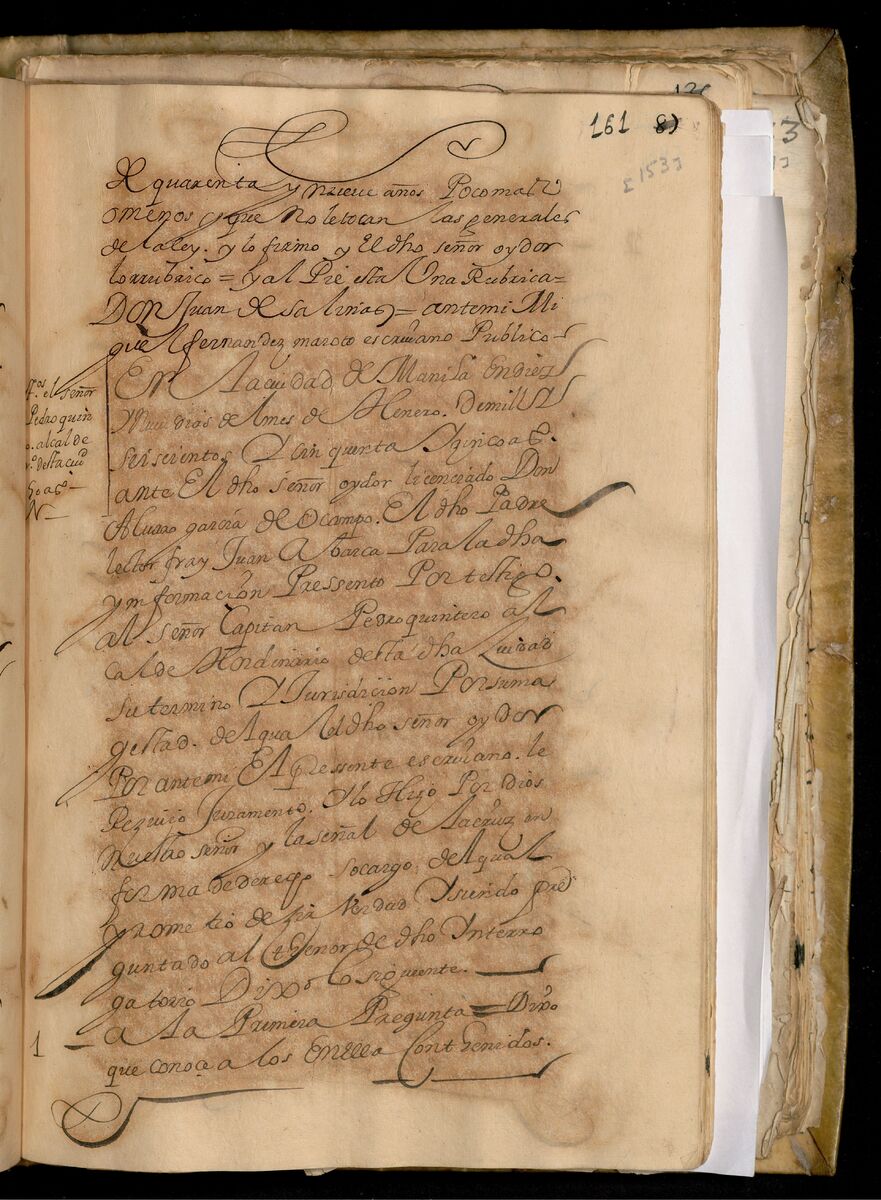 161 8)
[153]
de quarenta y nueve años Pocomas
omenos y que No letocan las generales
de la ley. y lo firmo y El dho señor oydor
lo rrubrico = y al Pie esta Una Rubrica =
Don Juan de salinas = antemi Mi
guel fernandez maroto escriuano Publico =
En La ciudad de Manila en diez
y nueue dias del mes de Henero. de mill Y
seiscientos Y cinquenta Y çinco as.
ante El dho señor oydor licenciado Don
Aluaro garcia de Ocampo. El dho Padre
lector fray Juan Abarca Para la dha
ynformacion Pressento Por testigo.
al señor Capitan Pedro quintero al
calde Hordinario desta dha Ciudad
su termino Y Jurisdicion Por su ma
gestad. del qual el dho señor oydor
Por antemi El pressente escriuano. le
Reziuio Juramento. Y lo Hiso Por Dios
nuestro señor y la señal de la cruz en
forma de derecho so cargo del qual
prometio de dezir Verdad Y siendo pre
guntado al thenor de dho Ynterro
gatorio Dixo lo siguiente.
1 — a La Primera Pregunta = Dixo
que conoçe a los En ella Conthenidos.
tos. el señor
Pedro quin
o. alcalde
desta ciud